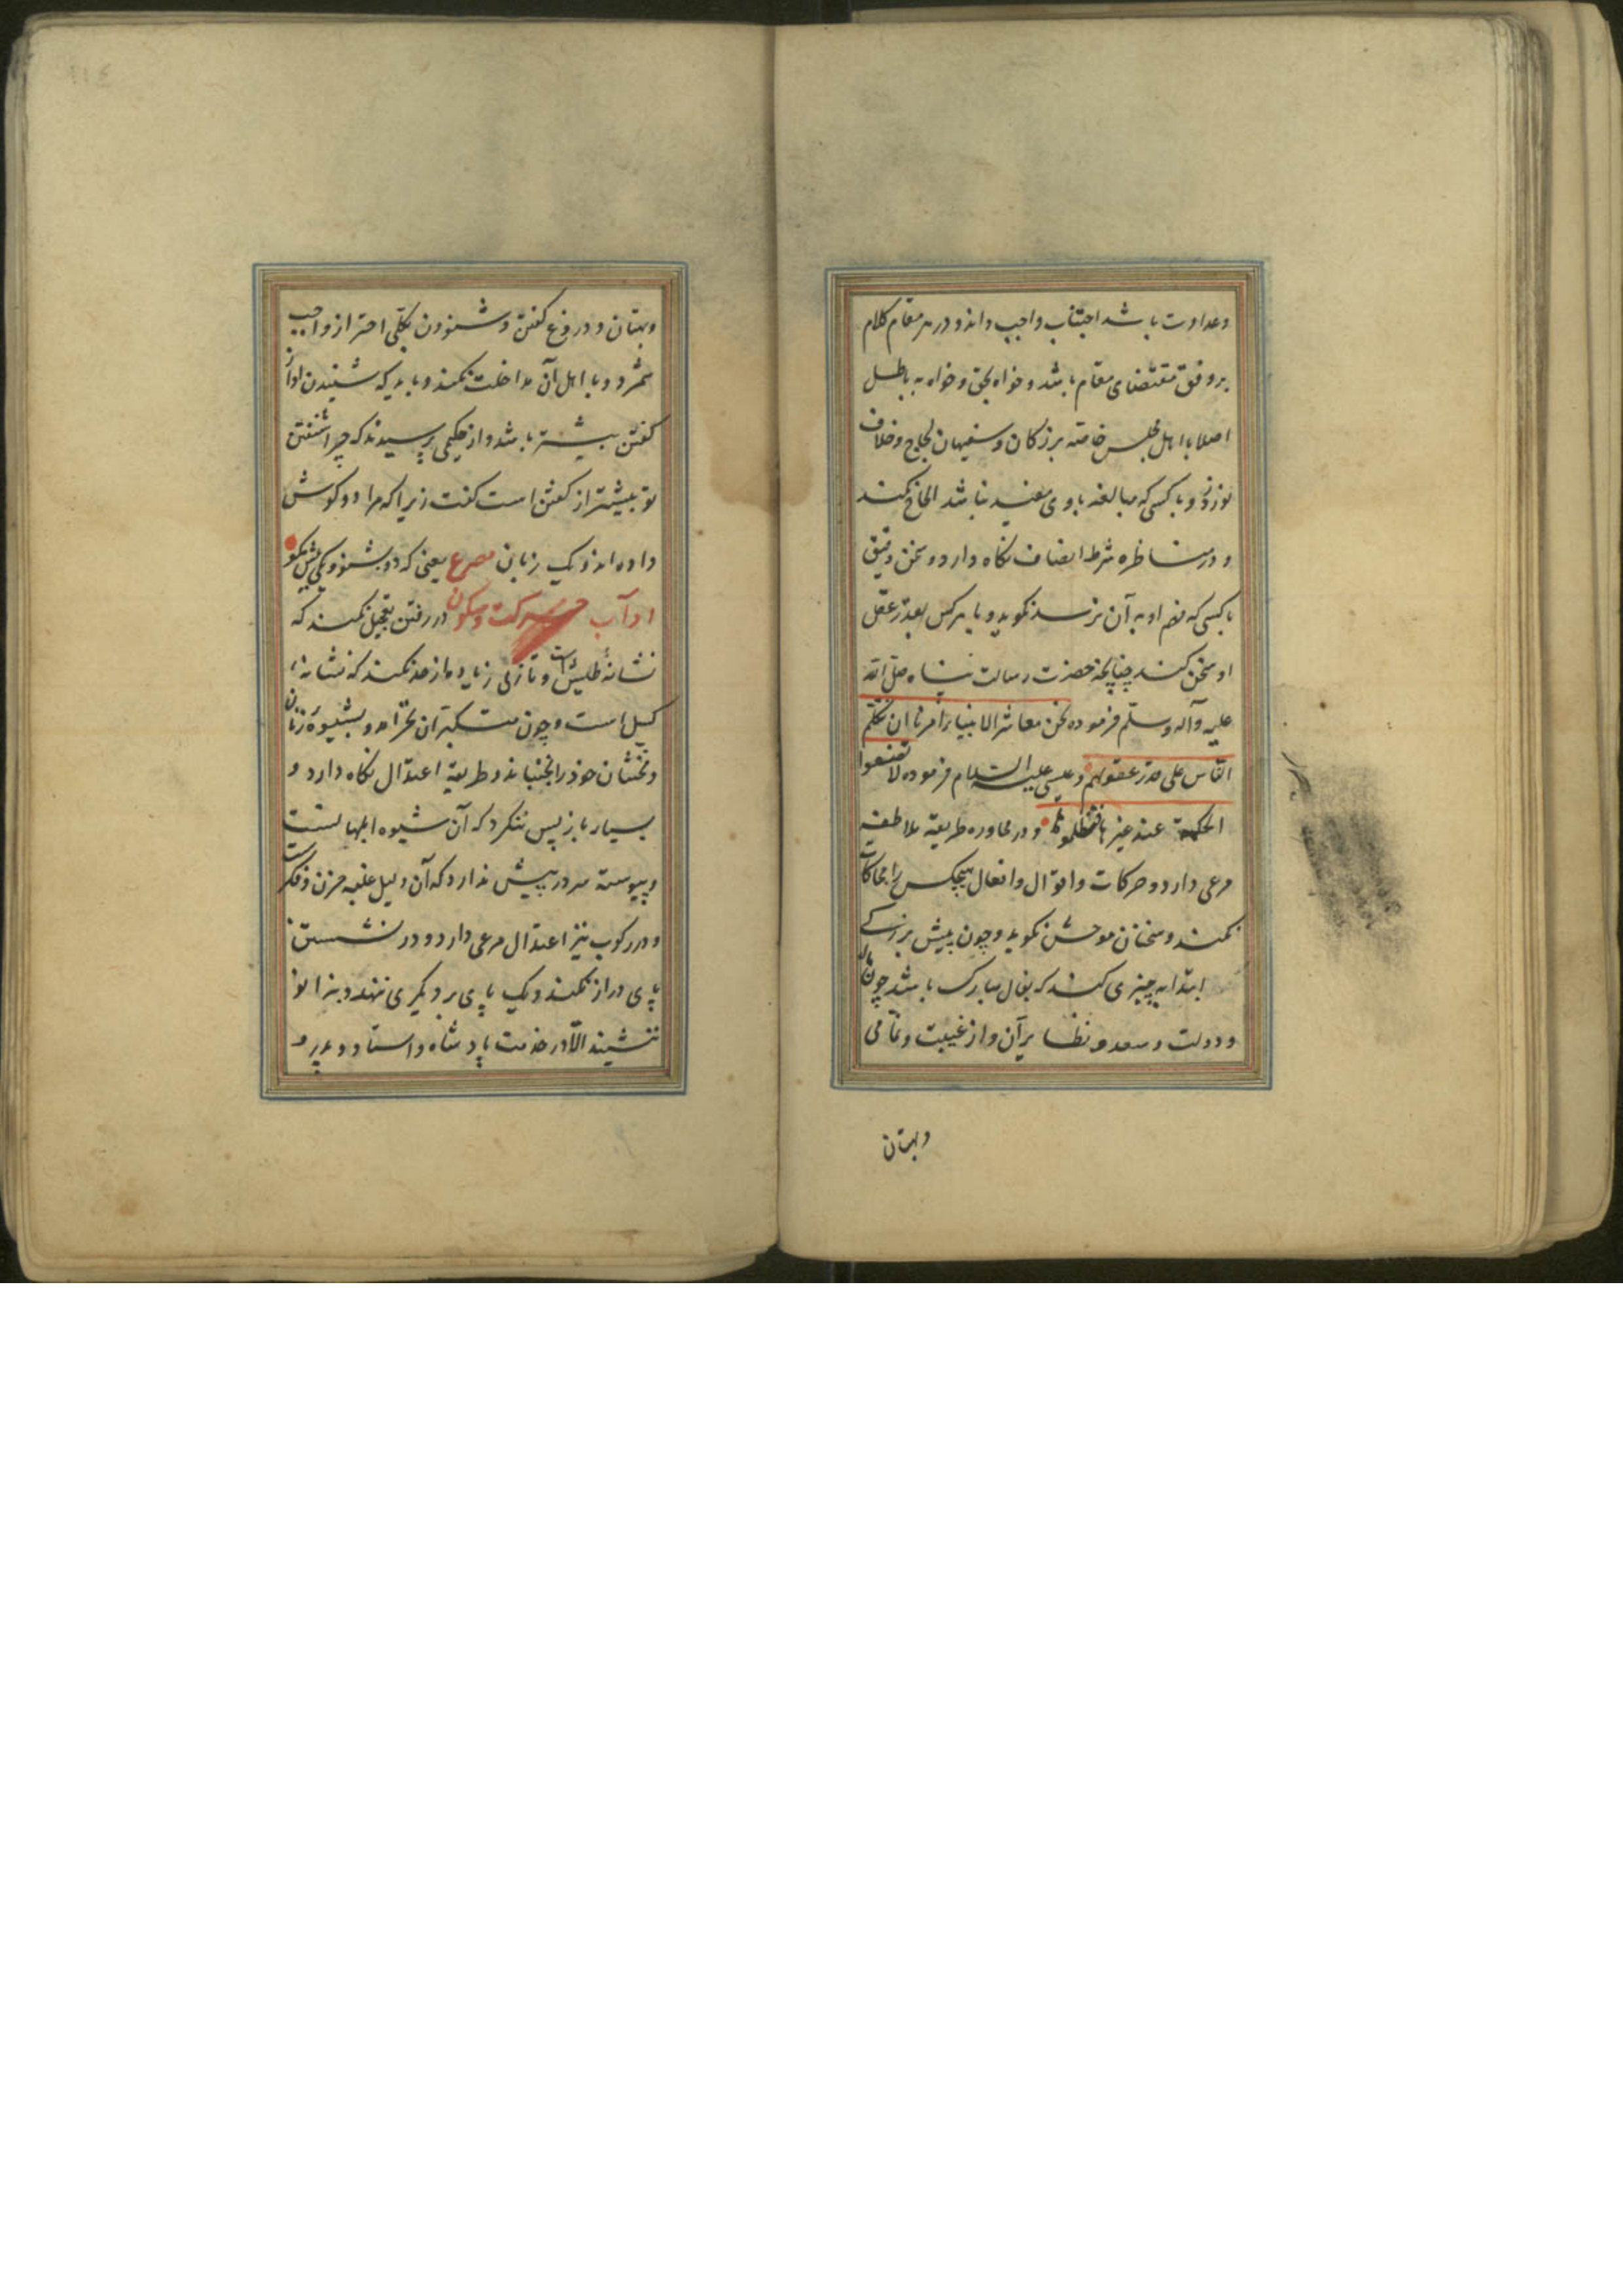 وعداوت باشد اجتناب واجب داند و در هر مقام کلام
بر وفق مقتضای مقام باشد و خواه بحق و خواه به باطل
اصلا با اهل مجلس خاصه بزرکان و سفیهان لجاج و خلاف
نورزد و با کسی که مبالغه با وی مفید نباشد الحاح نکند
و در مناظره شرط انصاف نکاه دارد و سخن دقیق
با کسی که فهم او به آن نرسد نکوید و با هر کس بقدر عقل
او سخن کند چنانچه حضرت رسالت پناه صلی الله
علیه وآله وسلم فرموده نحن معاشر الانبیاء امرنا ان نکلم
الناس علی قدر عقولهم و عیسی علیه السلام فرموده لا تضعوا
الحکمة عند غیر اهلها و در محاوره طریقه ملاطفه
مرعی دارد و حرکات و اقوال و افعال هیچکس را محاکات
نکند و سخنان موحش نکوید و چون پیش بزرکی
ابتدا به چیزی کند که بفال مبارک باشد چون
و دولت و سعد و نظایر آن و از غیبت و نمامی
وبهتان
١١٤
وبهتان و دروغ کفتن و شنودن بکلی احتراز واجب
شمرد و با اهل آن مداخلت نکند و باید که شنیدن او از
کفتن بیشتر باشد و از حکیمی پرسیدند که چرا شنفتن
تو بیشتر از کفتن است کفت زیرا که مرا دو کوش
داده اند و یک زبان مصرع یعنی که دو بشنو و یکی بیش مکو
اداب حرکت و سکون در رفتن تعجیل نکند که
نشانهٔ طیش است و تأنی زیاده از حد نکند که نشانهٔ
کسل است و چون متکبران نخرامد و بشیوهٔ زنان
و مخنثان خود را نجنباند و طریقه اعتدال نکاه دارد و
بسیار باز پس ننکرد که آن شیوه ابلهانست
و پیوسته سر در پیش ندارد که آن دلیل غلبه حزن و فکرست
و در رکوب نیز اعتدال مرعی دارد و در نشستن
پای دراز نکند و یک پای بر دیکری ننهد و بزانو
ننشیند الا در خدمت پادشاه و استاد و پدر و